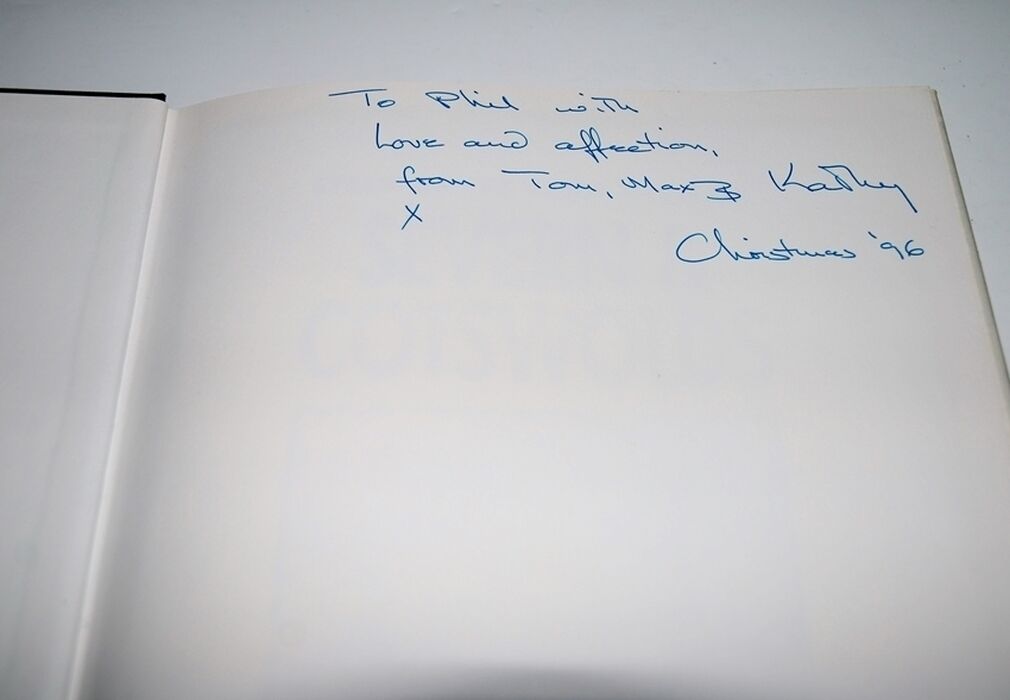 To Phil with
Love and affection,
from Tom, Max & Kathy
X
Christmas '96
COTSWOLDS